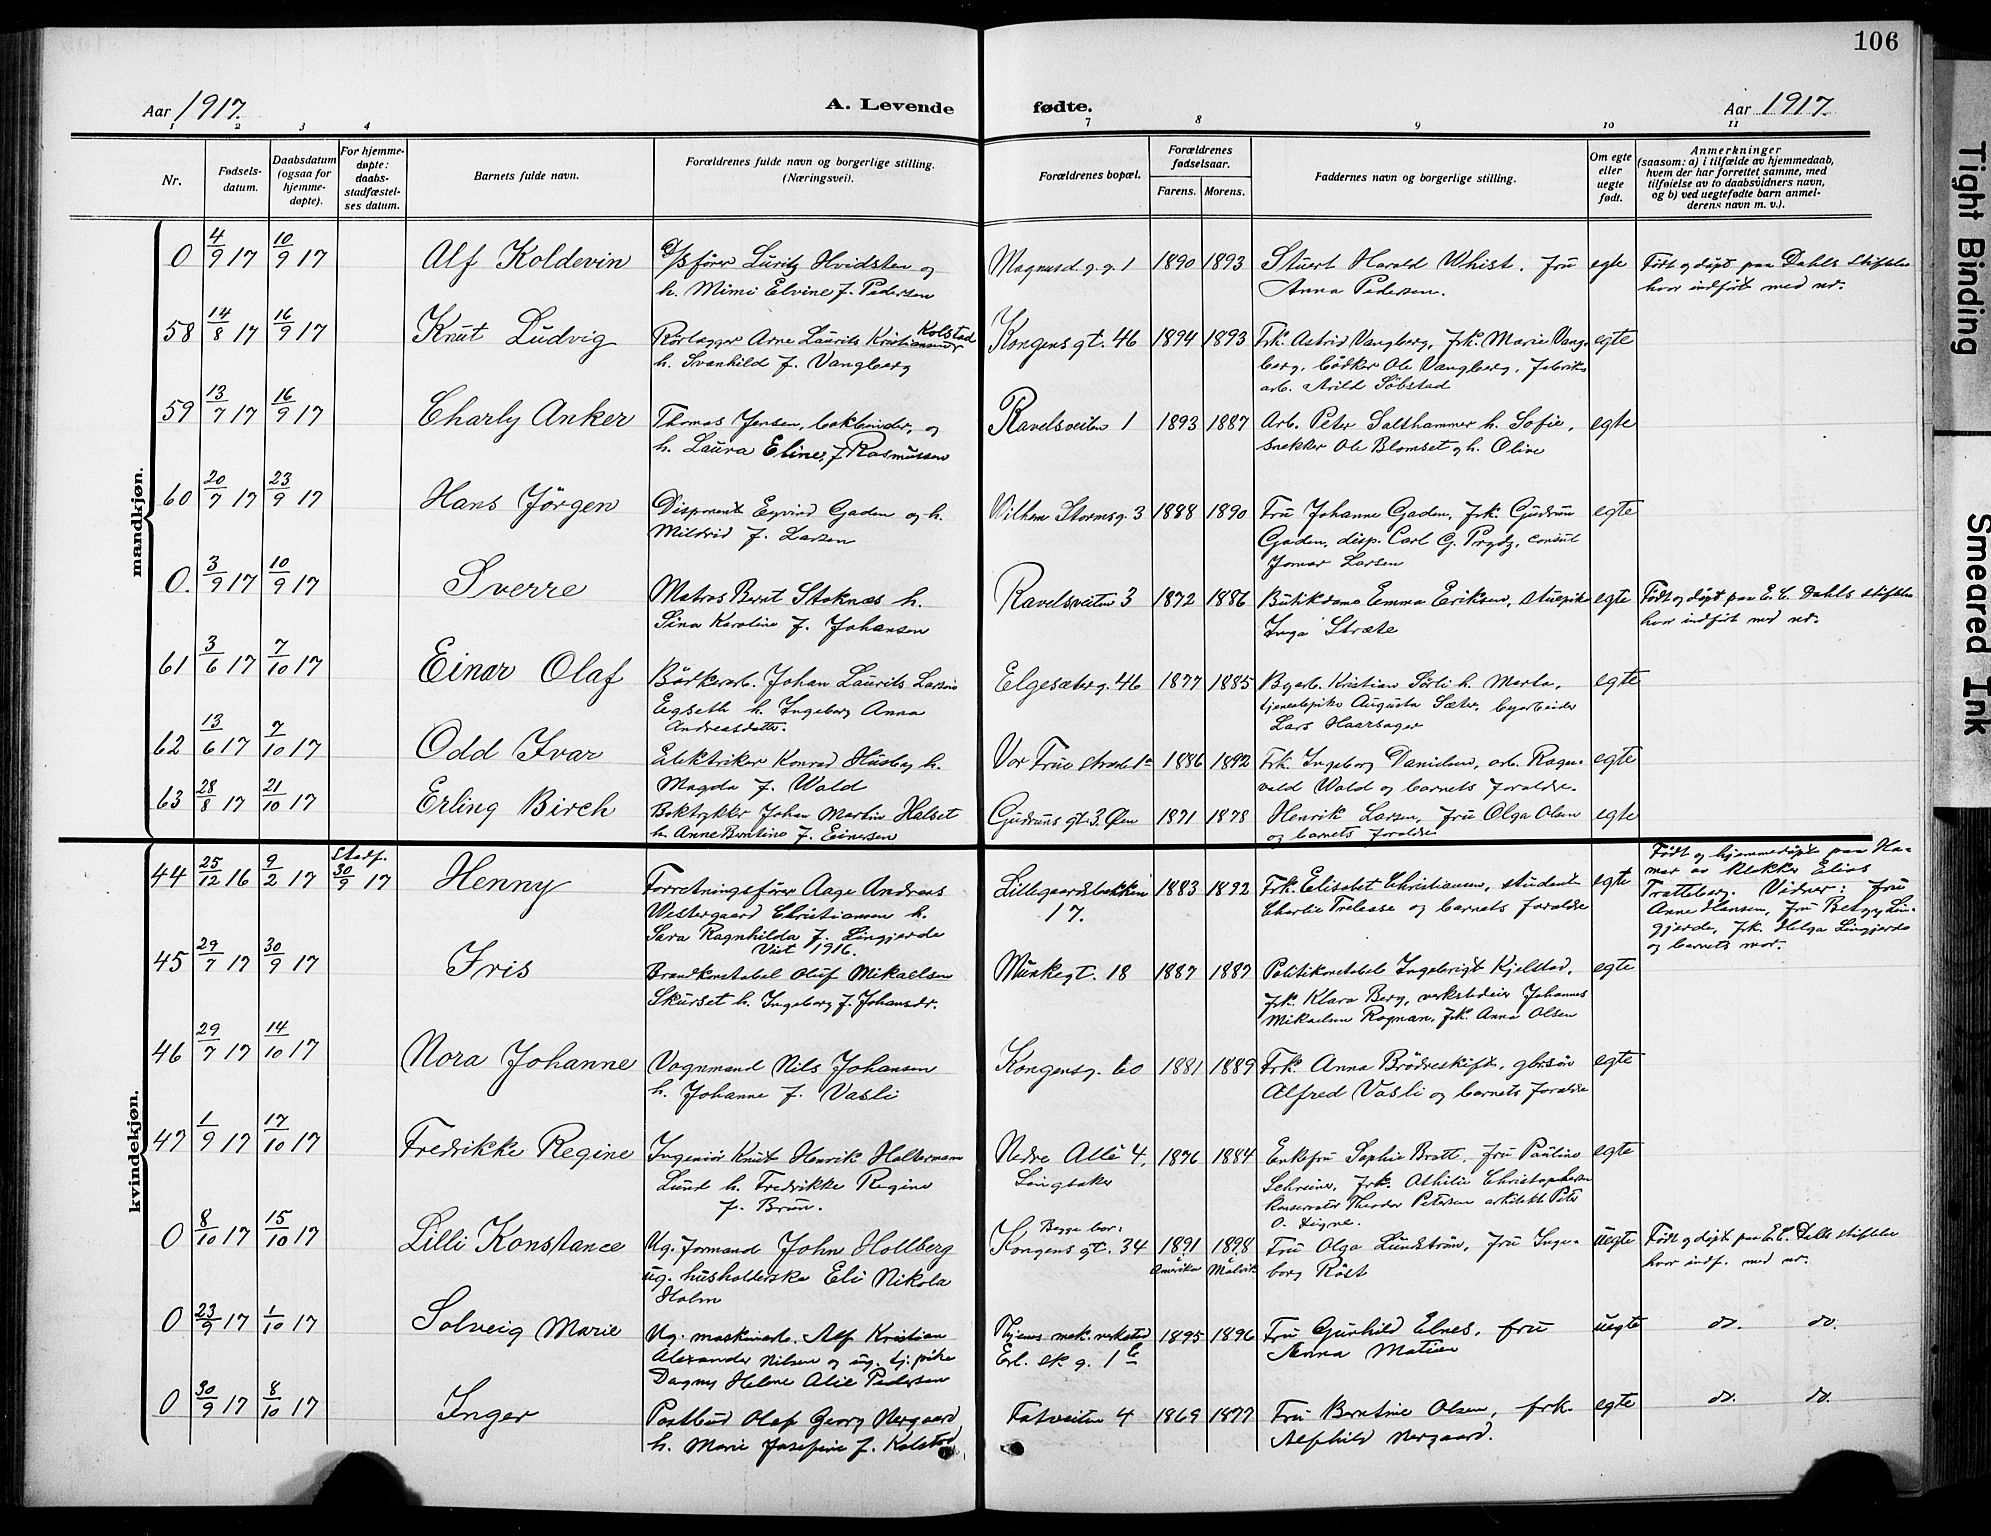 106
Aar 1917.
A. Levende fødte.
Aar 1917.
1 2 3 4 7 8 9 10 11
Nr.
Fødsels-
datum.
Daabsdatum
(ogsaa for
hjemme-
døpte).
For hjemme-
døpte:
daabs-
stadfæstel-
ses datum.
Barnets fulde navn.
Forældrenes fulde navn og borgerlige stilling.
(Næringsvei).
Forældrenes bopæl.
Forældrenes
fødselsaar.
Farens. Morens.
Faddernes navn og borgerlige stilling.
Om egte
eller
uegte
født.
Anmerkninger
(saasom: a) i tilfælde av hjemmedaab,
hvem der har forrettet samme, med
tilføielse av to daabsvidners navn,
og b) ved uegtefødte barn anmel-
derens navn m. v.).
mandkjøn.
0 4/9 17 10/9 17 Alf Koldevin
fører Luritz Hvidsten og
h. Mimi Elvine f. Pedersen
Magnusd. g. 1 1890 1893
Stuert Harald Whist. Fru
Anna Pedersen.
egte
Født og døpt paa Dahls Stiftelse
hvor indført med nr.
58 14/8 17 16/9 17 Knut Ludvig
Rörlægger Arne Laurits Kristiansen Kolstad
h. Svanhild f. Vangberg
Kongens gt. 46 1894 1893
Frk. Astrid Vangberg, frk. Marie Vang-
berg, bödker Ole Vangberg, fabrik-
arb. Arild Söbstad
egte
59 13/7 17 16/9 17 Charly Anker
Thomas Jensen, bokbinder, og
h. Laura Eline, f. Rasmussen
Ravelsveiten 1 1893 1887
Arb. Peter Salthammer h. Sofie,
snekker Ole Blomset og h. Olive
egte
60 20/7 17 23/9 17 Hans Jörgen
Disponent Eyvind Gaden og h.
Mildrid f. Larsen
Wilhem Stormsg. 3 1888 1890
Fru Johanne Gaden, frk. Gudrun
Gaden, disp. Carl G. Prydz, consul
Jomar Larsen
egte
0. 3/9 17 10/9 17 Sverre
Matros Bernt Stoknæs h.
Sina Karoline f. Johansen
Ravelsveiten 3 1872 1886
Butikdame Emma Eriksen, stuepike
Inga Stræte
egte
Født og døpt paa E. C. Dahls stiftelse
hvor indført med nr.
61 3/6 17 7/10 17 Einar Olaf
Börkerarb. Johan Laurits Larsen
Eegseth h. Ingeborg Anna
Andreasdatter.
Elgesæterg. 46 1877 1885
Byarb. Kristian Sørli h. Marta,
tjenestepike Augusta Sæter, byarbeider
Lars Haarsager
egte
62 13/6 17 7/10 17 Odd Ivar
Elektriker Konrad Husby h.
Magda f. Wald
Vor Frue stræde 1a 1886 1892
Frk. Ingeborg Danielsen, arb. Ragn-
vald Wald og barnets forældre.
egte
63 28/8 17 21/10 17 Erling Birch
Boktrykker Johan Martin Halset
h. Anne Berntine f. Einersen
Gudruns gt. 3. Øen 1871 1878
Henrik Larsen, fru Olga Olsen
og barnets forældre
egte
kvindekjøn.
44 25/12 16 9/2 17 Stadf. 30/9 17 Henny
Forretningsfører Aage Andreas
Westergaard Christiansen h.
Sara Ragnhilda f. Lingjerde
Viet 1916.
Lillegaardsbakken
17.
1883 1892
Frk. Elisabet Christiansen, student
Charlie Trelease og barnets forældre
egte
Født og hjemmedøpt paa Ha-
mar av klokker Elias
Trætteberg. Vidner: fru
Anne Hansen, fru Betzy Lin-
gjerde, frk. Helga Lingjerde
og barnets mor.
45 29/7 17 30/9 17 Iris
Brandkonstabel Oluf Mikaelsen
Skurset h. Ingeborg f. Johansdr.
Munkegt. 18 1887 1887
Politikonstabel Ingebrigt Kjelstad,
frk. Klara Berg, verkstedeier Johannes
Mikaelsen Rognan, frk. Anna Olsen
egte
46 29/7 17 14/10 17 Nora Johanne
Vognmand Nils Johansen
h. Johanne f. Vasli
Kongensg. 60 1881 1889
Frk. Anna Brödreskift, gbrsön
Alfred Vasli og barnets forældre
egte
47 1/9 17 17/10 17 Fredrikke Regine
Ingeniör Knut Henrik Holtermann
Lund h. Fredrikke Regine
f. Brun.
Nedre Allé 4,
Singsaker
1876 1884
Enkefru Sophie Bratt, fru Pauline
Schreiner, frk. Athilie Christophersen
Konservator Theodor Petersen arkitekt Peter
O. Digne.
egte
0 8/10 17 15/10 17 Lilli Konstance
Ug. formand John Hollberg
ug. husholderske Eli Nikola
Holm
Begge bor:
Kongens gt. 34 1891 Amerika 1898 Malvik
Fru Olga Lundström, fru Inge-
borg Röst
uegte
Født og døpt paa E. C. Dahls stiftelse
hvor indf. med nr.
0 23/9 17 1/10 17 Solveig Marie
Ug. maskinarb. Alf Kristian
Alexander Nilsen og ug. tj. pike
Dagny Helene Alie Pedersen
Thjems mek. verksted
Erl. sk g. 1 b
1895 1896
Fru Gunhild Elnes, fru
Anna Matien
uegte
do. do.
0 30/9 17 8/10 17 Inger
Postbud Olaf Georg Nergaard
h. Marie Josefine f. Kolstad
Fatveiten 4 1869 1877
Fru Berntine Olsen, frk.
Alfhild Nergaard.
egte
do. do.
Tight Binding
Smeared Ink